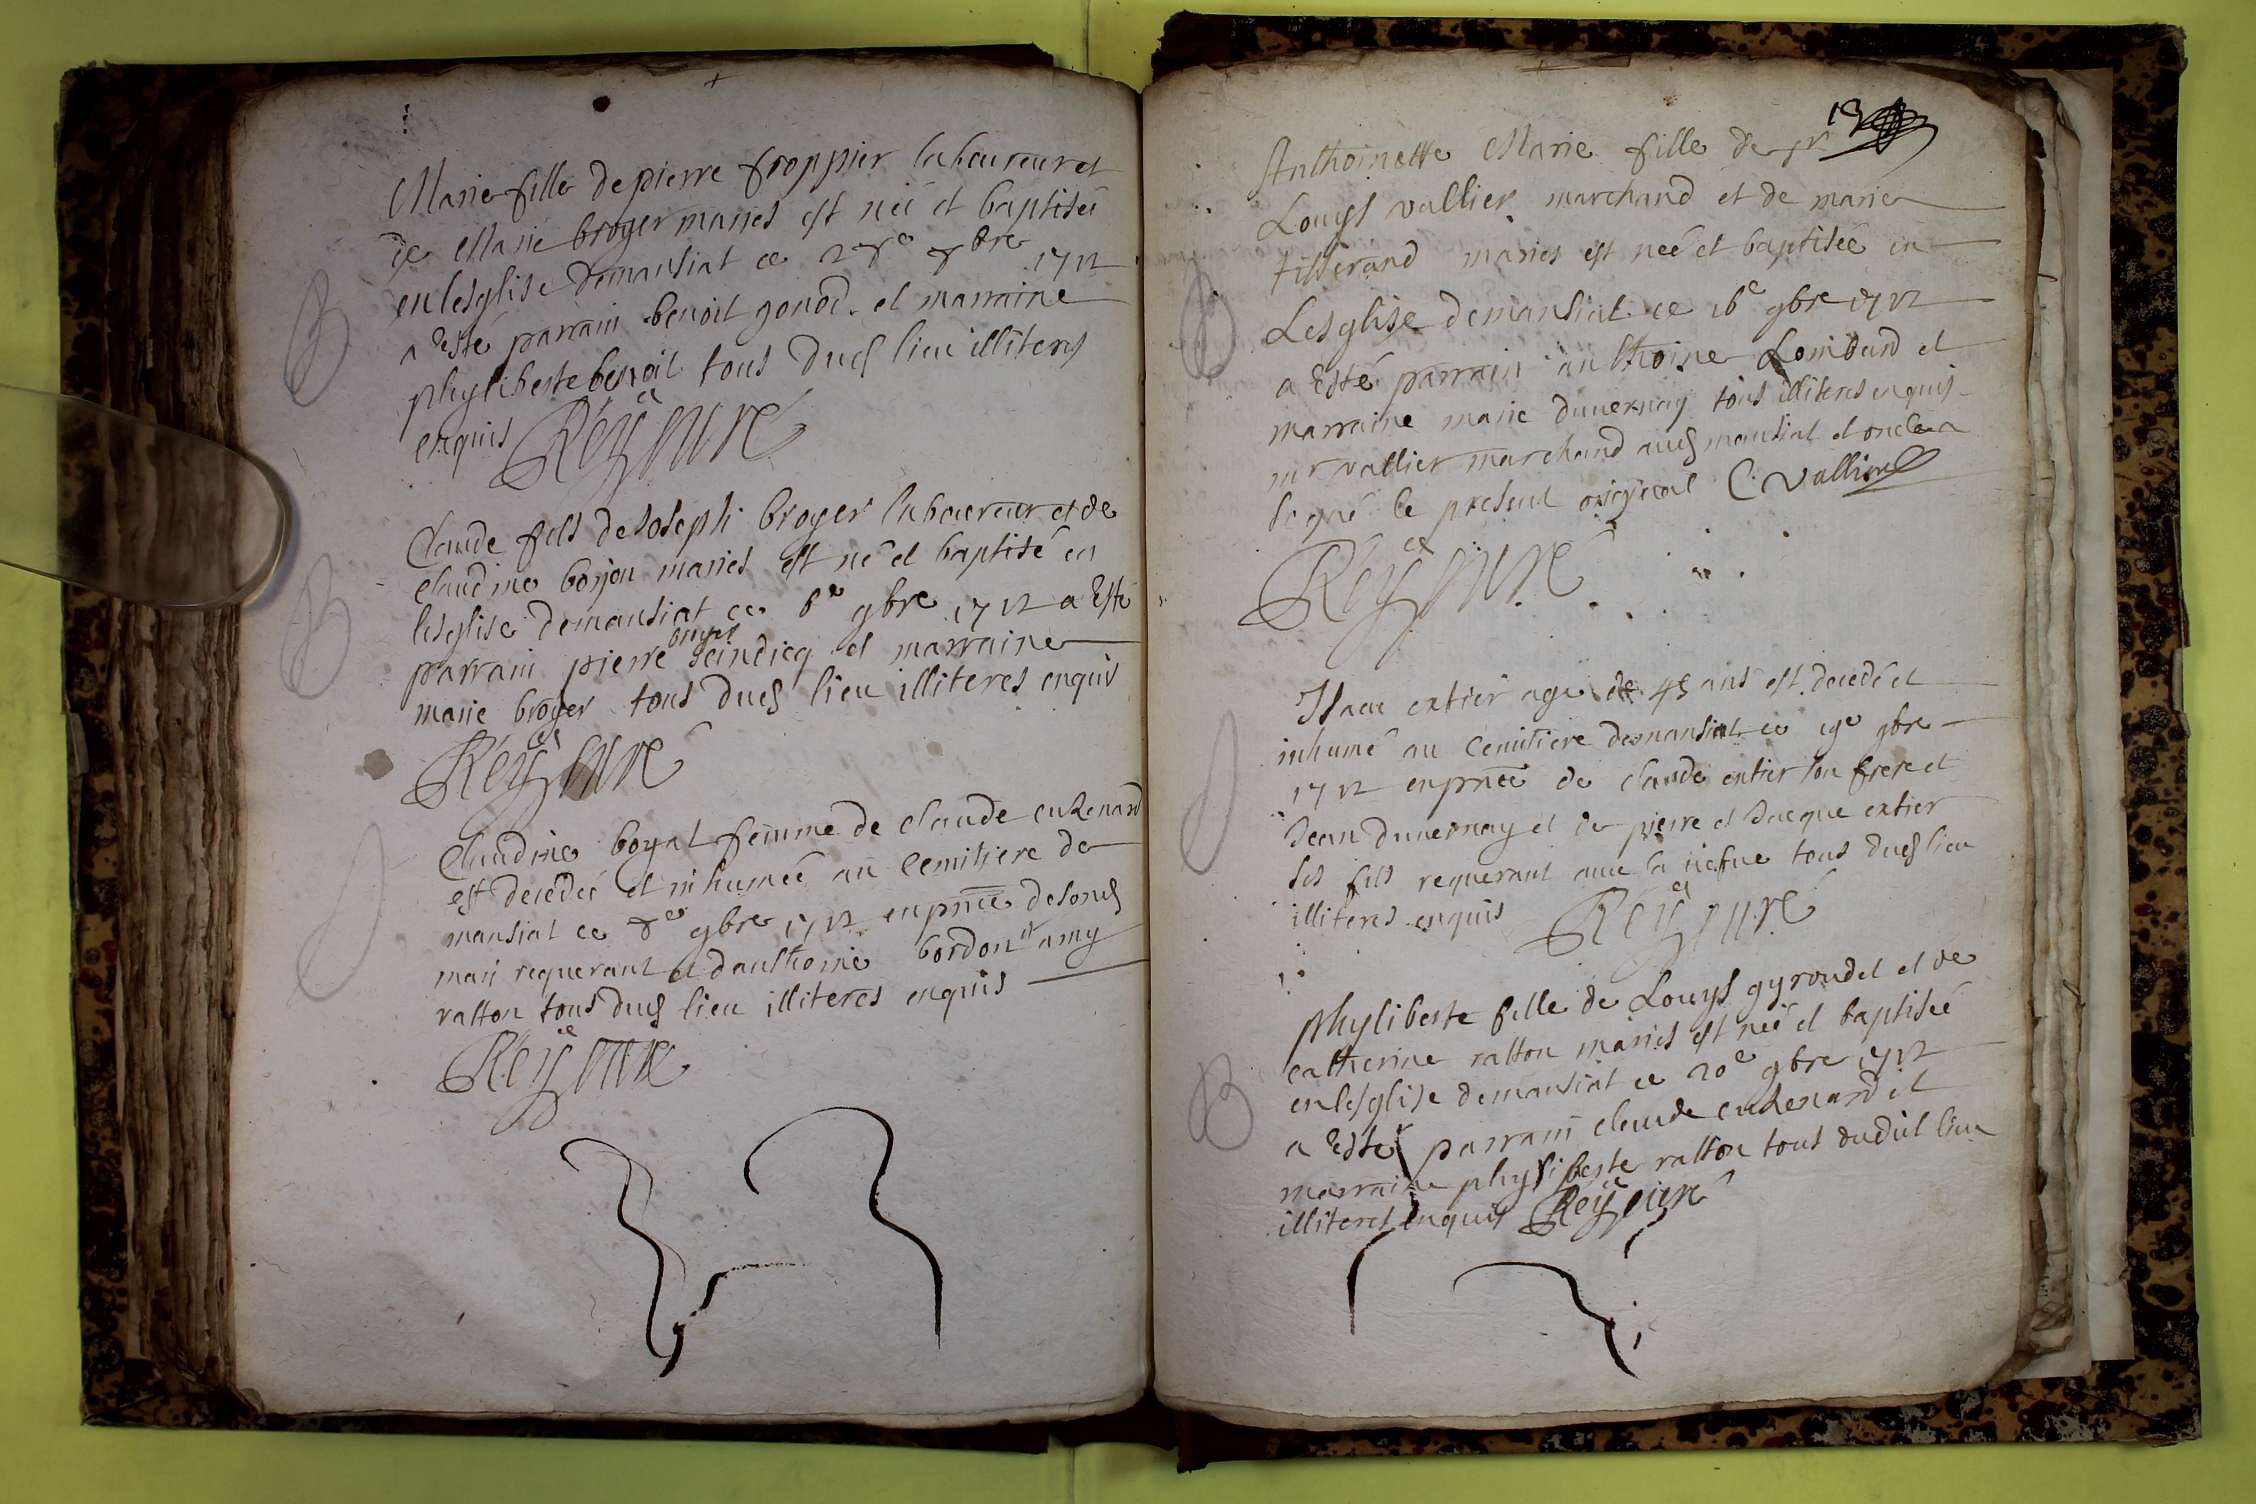 Marie fille de pierre froppier laboureur et
de Marie broyer maries est neé et baptiseé
en lesglise demansiat ce 28e 8bre 1712
a Esté parrain benoit gonod et marraine
phyliberte benoit tous dud lieu illiteres
enquis Reÿ curé
Claude fils de Joseph broyer laboureur et de
claudine borjon maries est né et baptisé en
lesglise demansiat ce 6e 9bre 1712 a Esté
parrain pierre broyer scindicq et marraine
marie broyer tous dud lieu illiteres enquis
Reÿ curé
Claudine boyat femme de claude cuRenard
est decedeé et inhumeé au Cemitiere de
mansiat ce 8e 9bre 1712 en pnce de son d
mari requerant et danthoine bordon et amy
ratton tous dud lieu illiteres enquis
Reÿ curé
19
Anthoinette Marie fille de sr
Louys vallier marchand et de marie
tisserand maries est neé et baptiseé en
Lesglise demansiat ce 16e 9bre 1712
a Esté parrain anthoine Lombard et
marraine marie duvernay tous illiteres enquis
mr vallier marchand aud mansiat et oncle a
signé le present original C. vallier
Reÿ curé
Isaac extier agé de 45 ans est decedé et
inhumé au Cemitiere demansiat ce 19e 9bre
1712 en pnce de claude extier son frere et
Jean duvernay et de pierre et Jacque extier
ses fils requerant avec la vefue tous dud lieu
illiteres enquis Reÿ curé
phyliberte fille de Louys gyroudet et de
catherine ratton maries est neé et baptiseé
en lesglise demansiat ce 20e 9bre 1712
a Esté parrain claude cuRenard et
marraine phyliberte ratton tous dudit lieu
illiteres enquis Reÿ curé